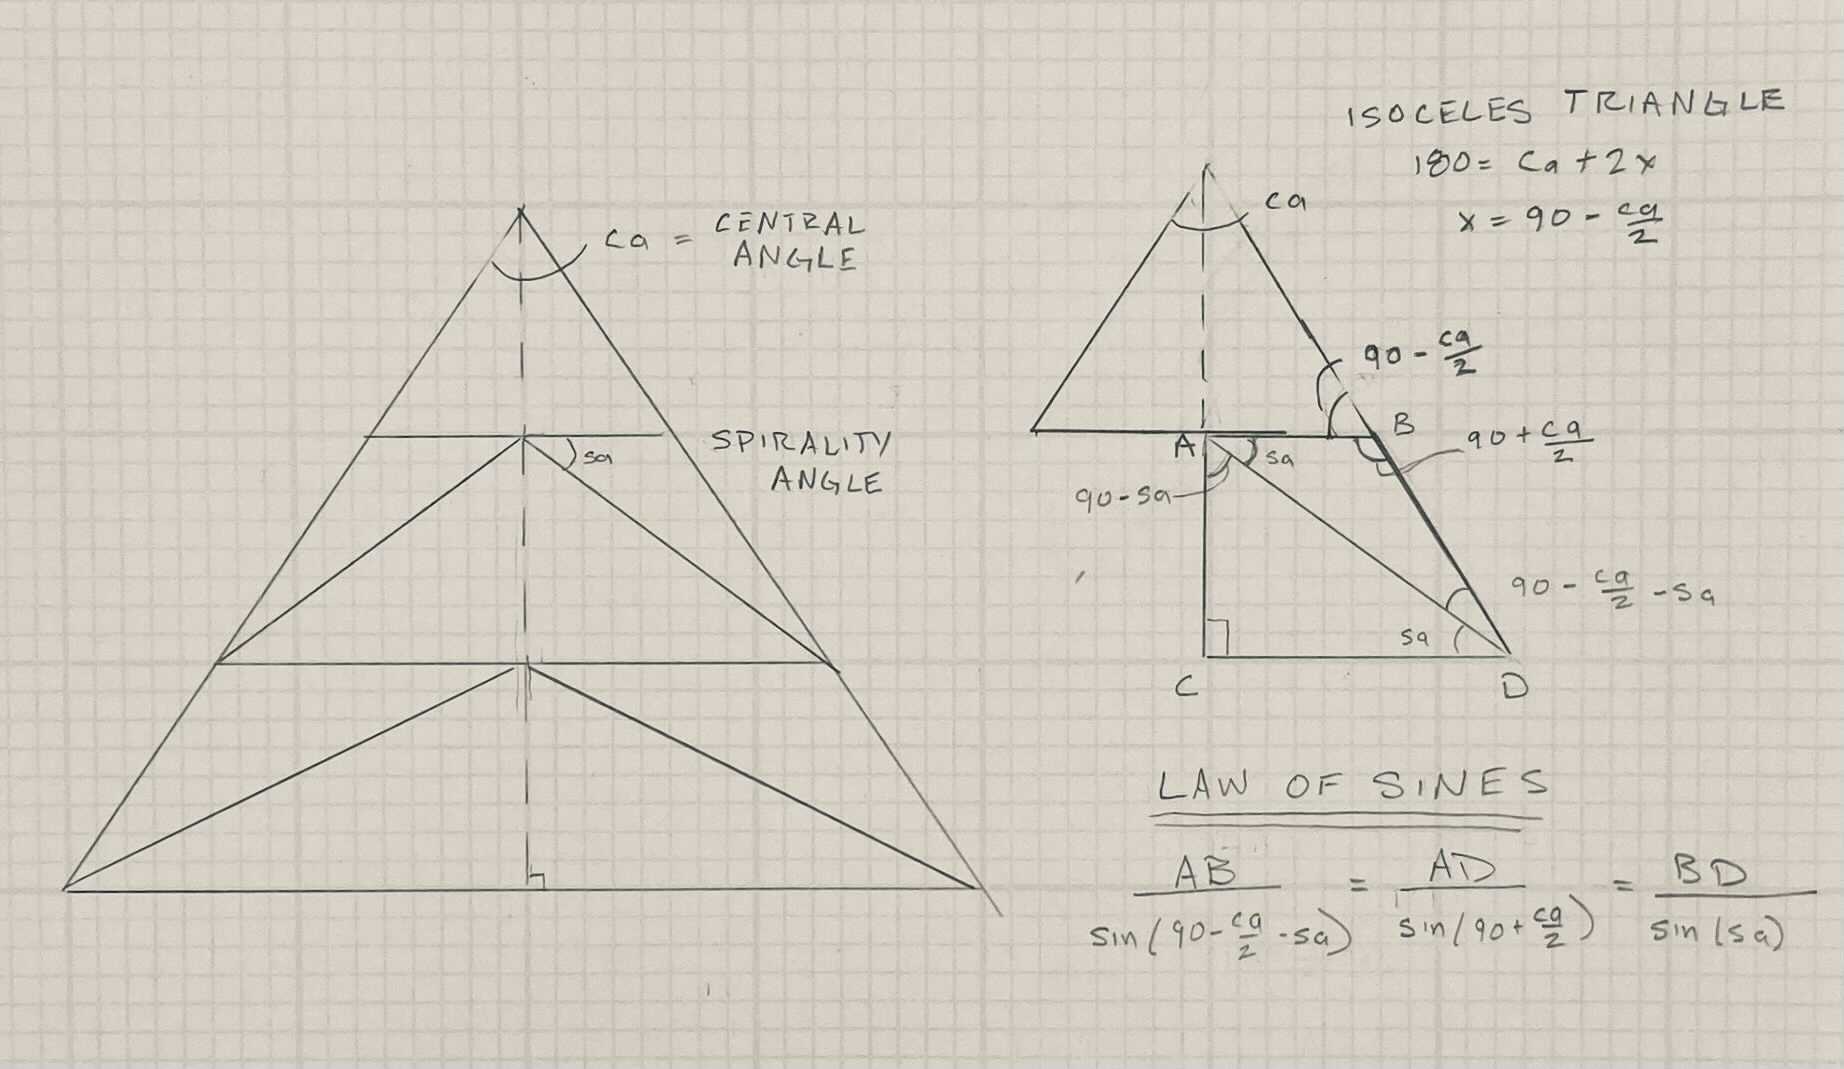 ca = CENTRAL
ANGLE
sa
SPIRALITY
ANGLE
ISOCELES TRIANGLE
180 = ca + 2x
x = 90 - ca/2
ca
90 - ca/2
A
B
sa
90 + ca/2
90 - sa
90 - ca/2 - sa
sa
C
D
LAW OF SINES
AB/sin(90 - ca/2 - sa) = AD/sin(90 + ca/2) = BD/sin(sa)